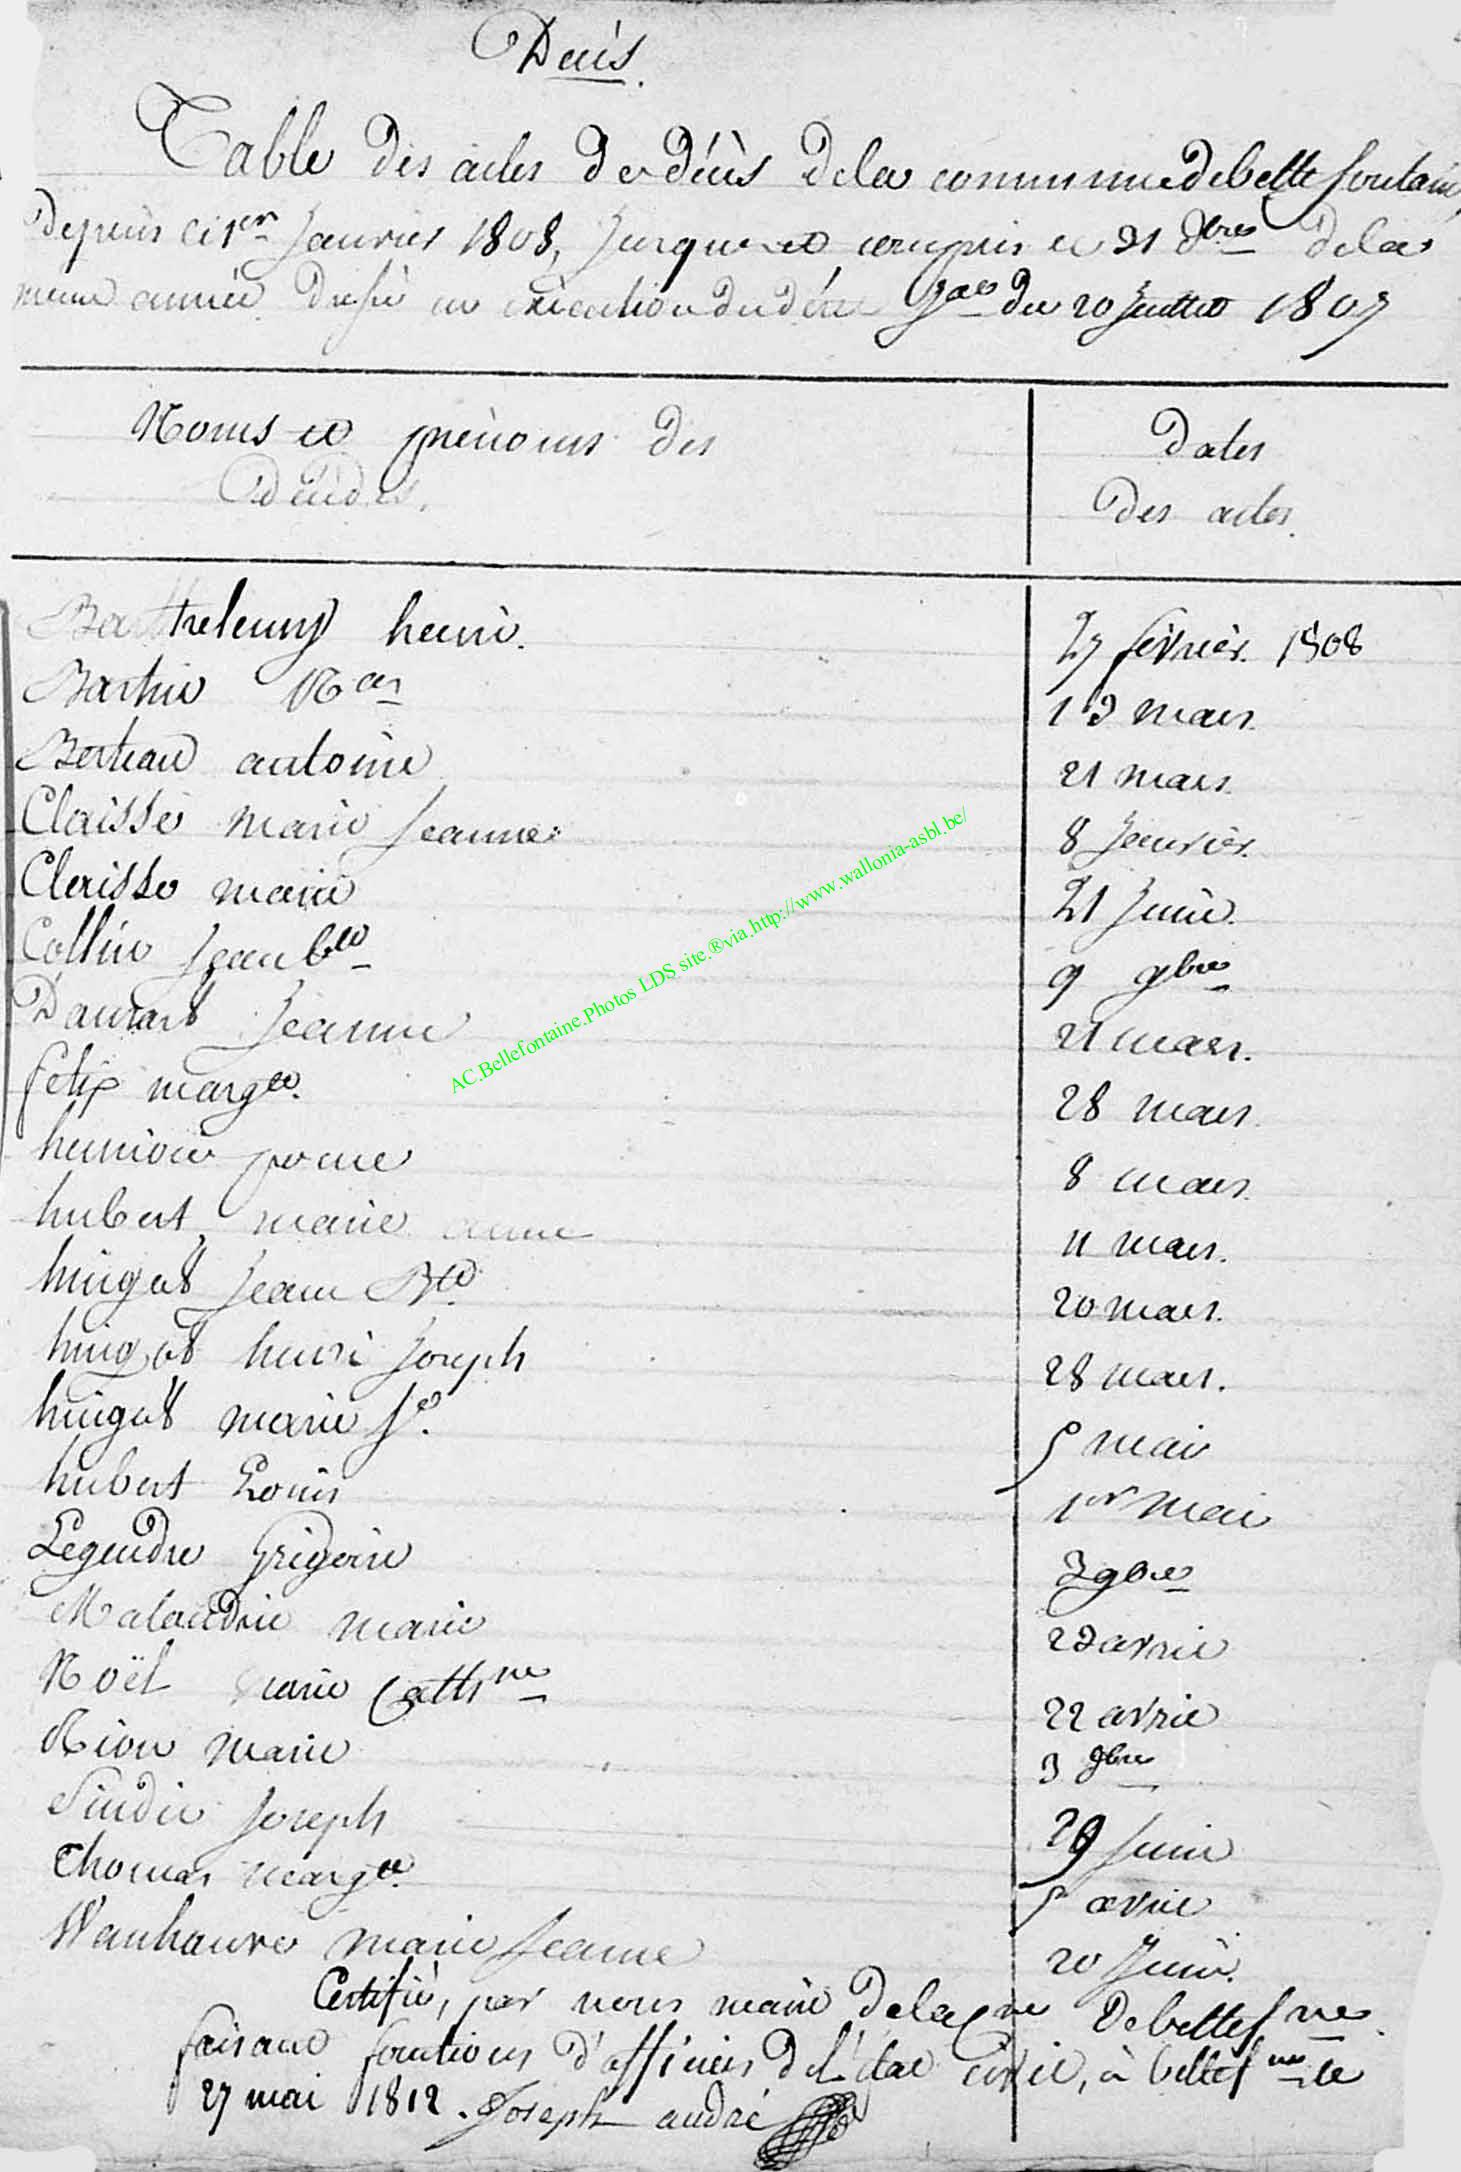 Décès.
Table des actes de décès de la commune de bellefontaine,
Depuis le 1er Janvier 1808, Jusque et compris le 31 Xbres de la
meme année dressé en exécution du décret du 20 Juillet 1807
Noms et prénoms des
Décédés.
Dates
Des actes.
Barthelemy henri. 27 février 1808
Marc 13 mars
antoine 21 mars
Claisse marie Jeanne 8 Janvier
Claisse marie 21 Juin
Collin Jean bte 9 9bre
Jeanne 21 mars.
felix margte. 28 mars
8 mars
hubert marie anne 11 mars.
hingot Jean Bte 20 mars.
hingot henri Joseph 28 mars.
hingot marie Je. 5 mai
hubert Louis 1er mai
Legendre Grégoire 3 9bre
Malaudrie marie 23 avril
Noël marie Cathne 22 avril
Rion marie 3 9bre
Sindic Joseph 29 Juin
Thomas margte. 5 avril
Wanhauve marie Jeanne 20 Juin.
Certifié, par nous maire de la Cne De bellefne.
faisant fonctions d'officier de l'état civil, à bellefne le
27 mai 1812. Joseph andré
AC.Bellefontaine.Photos LDS site.®via.http://www.wallonia-asbl.be/